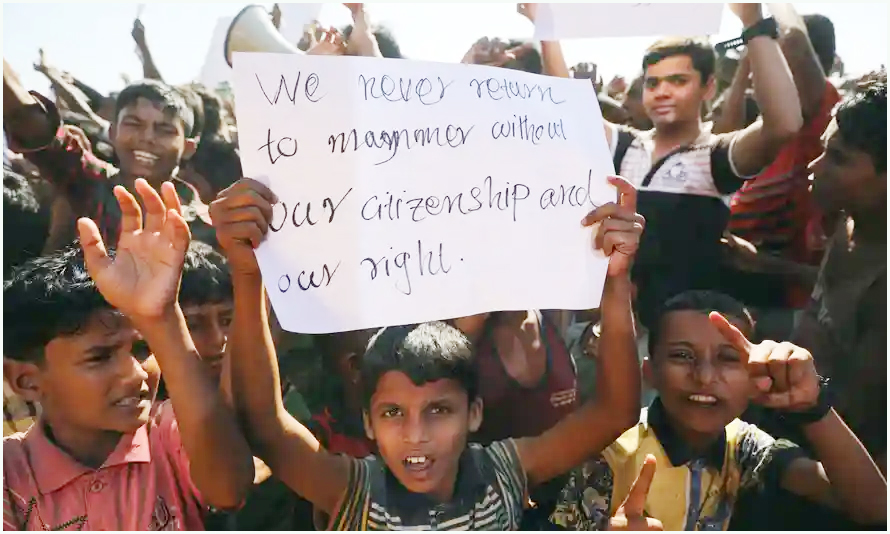 We never return
to magnmer without
our citizenship and
our right.